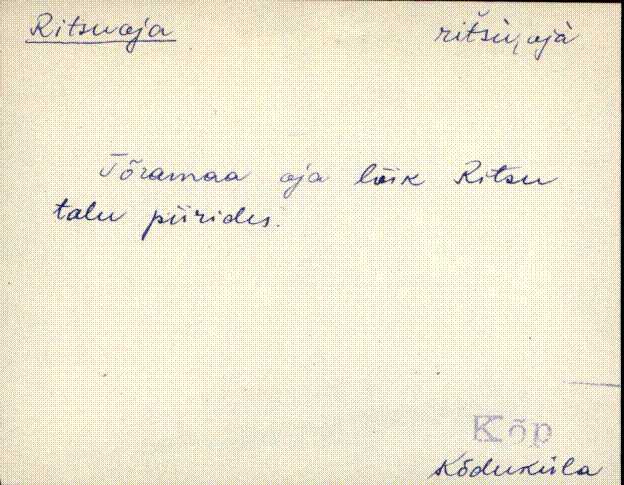 Ritsuoja ritši,ojà
Tõramaa oja lõik Ritsu
talu piirides.
Kõp
Kõduküla